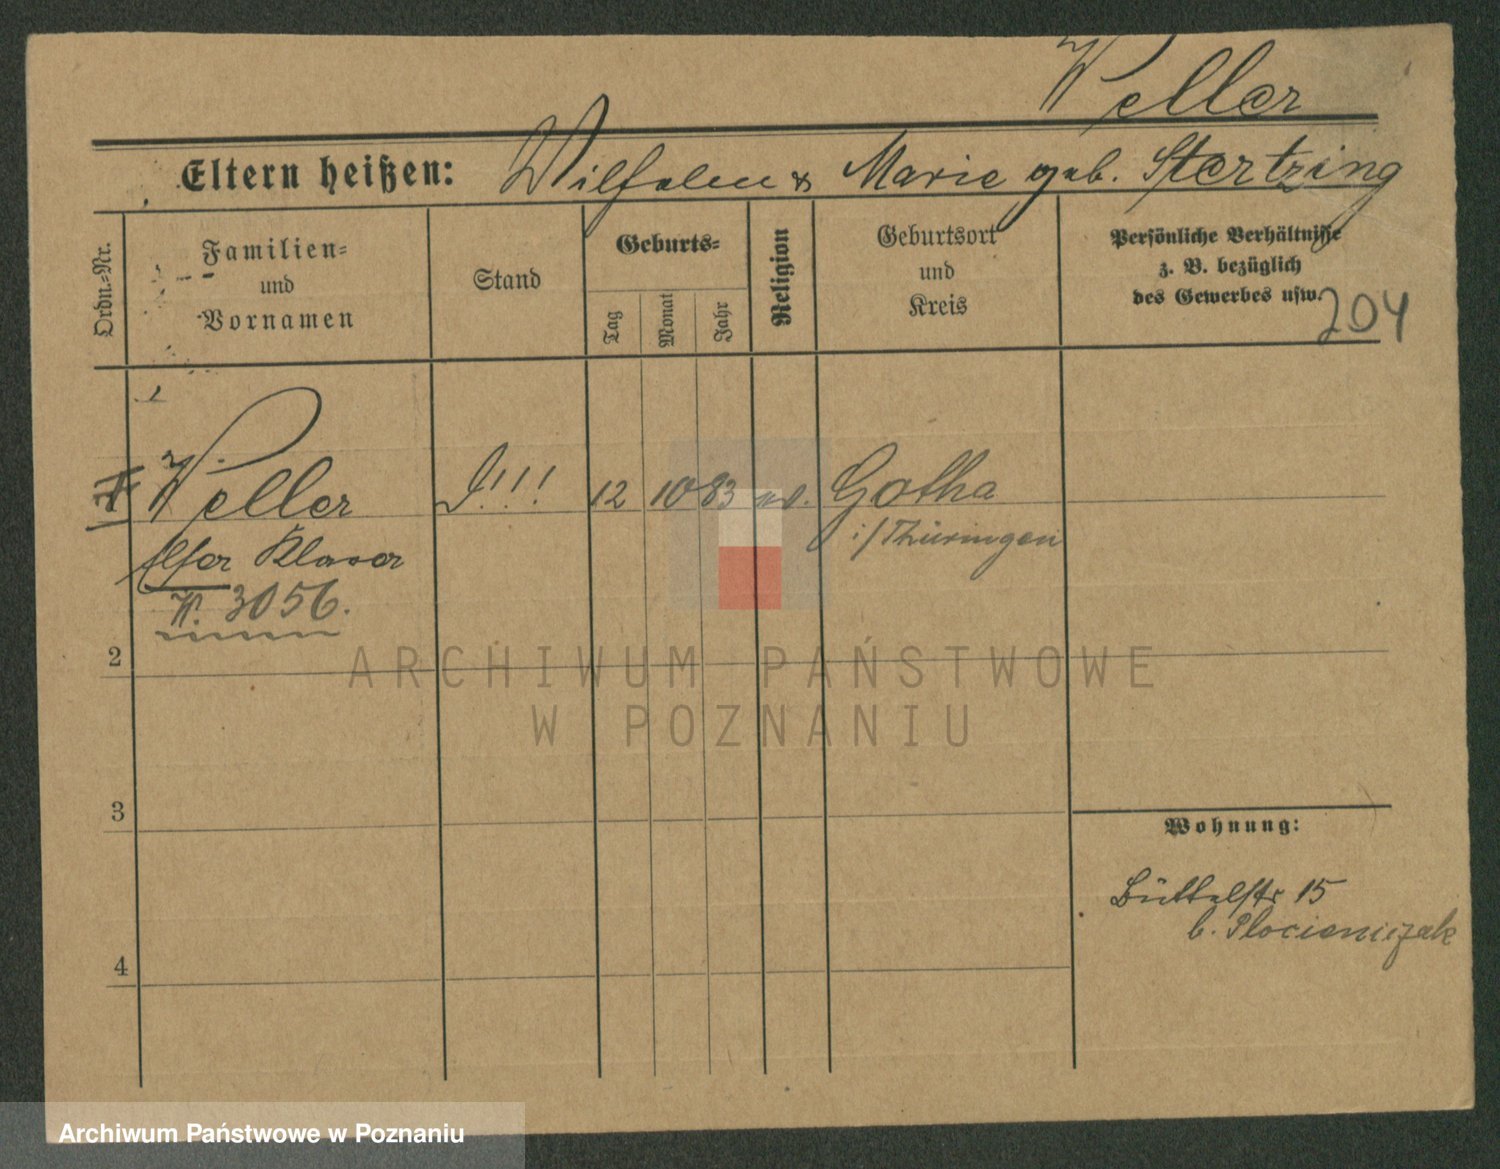 Weller
Eltern heißen: Wilhelm & Marie geb. Stertzing
Ordn.-Nr.
Familien-
und
Vornamen
Stand
Geburts-
Tag
Monat
Jahr
Religion
Geburtsort
und
Kreis
Persönliche Verhältnisse
z. B. bezüglich
des Gewerbes usw.
204
Weller
!!! 12 10 83 ev. Gotha
i/Thüringen
W. 3056.
2
3
4
Wohnung:
Büttelstr 15
b. Plocieniczak
ARCHIWUM PAŃSTWOWE
W POZNANIU
Archiwum Państwowe w Poznaniu